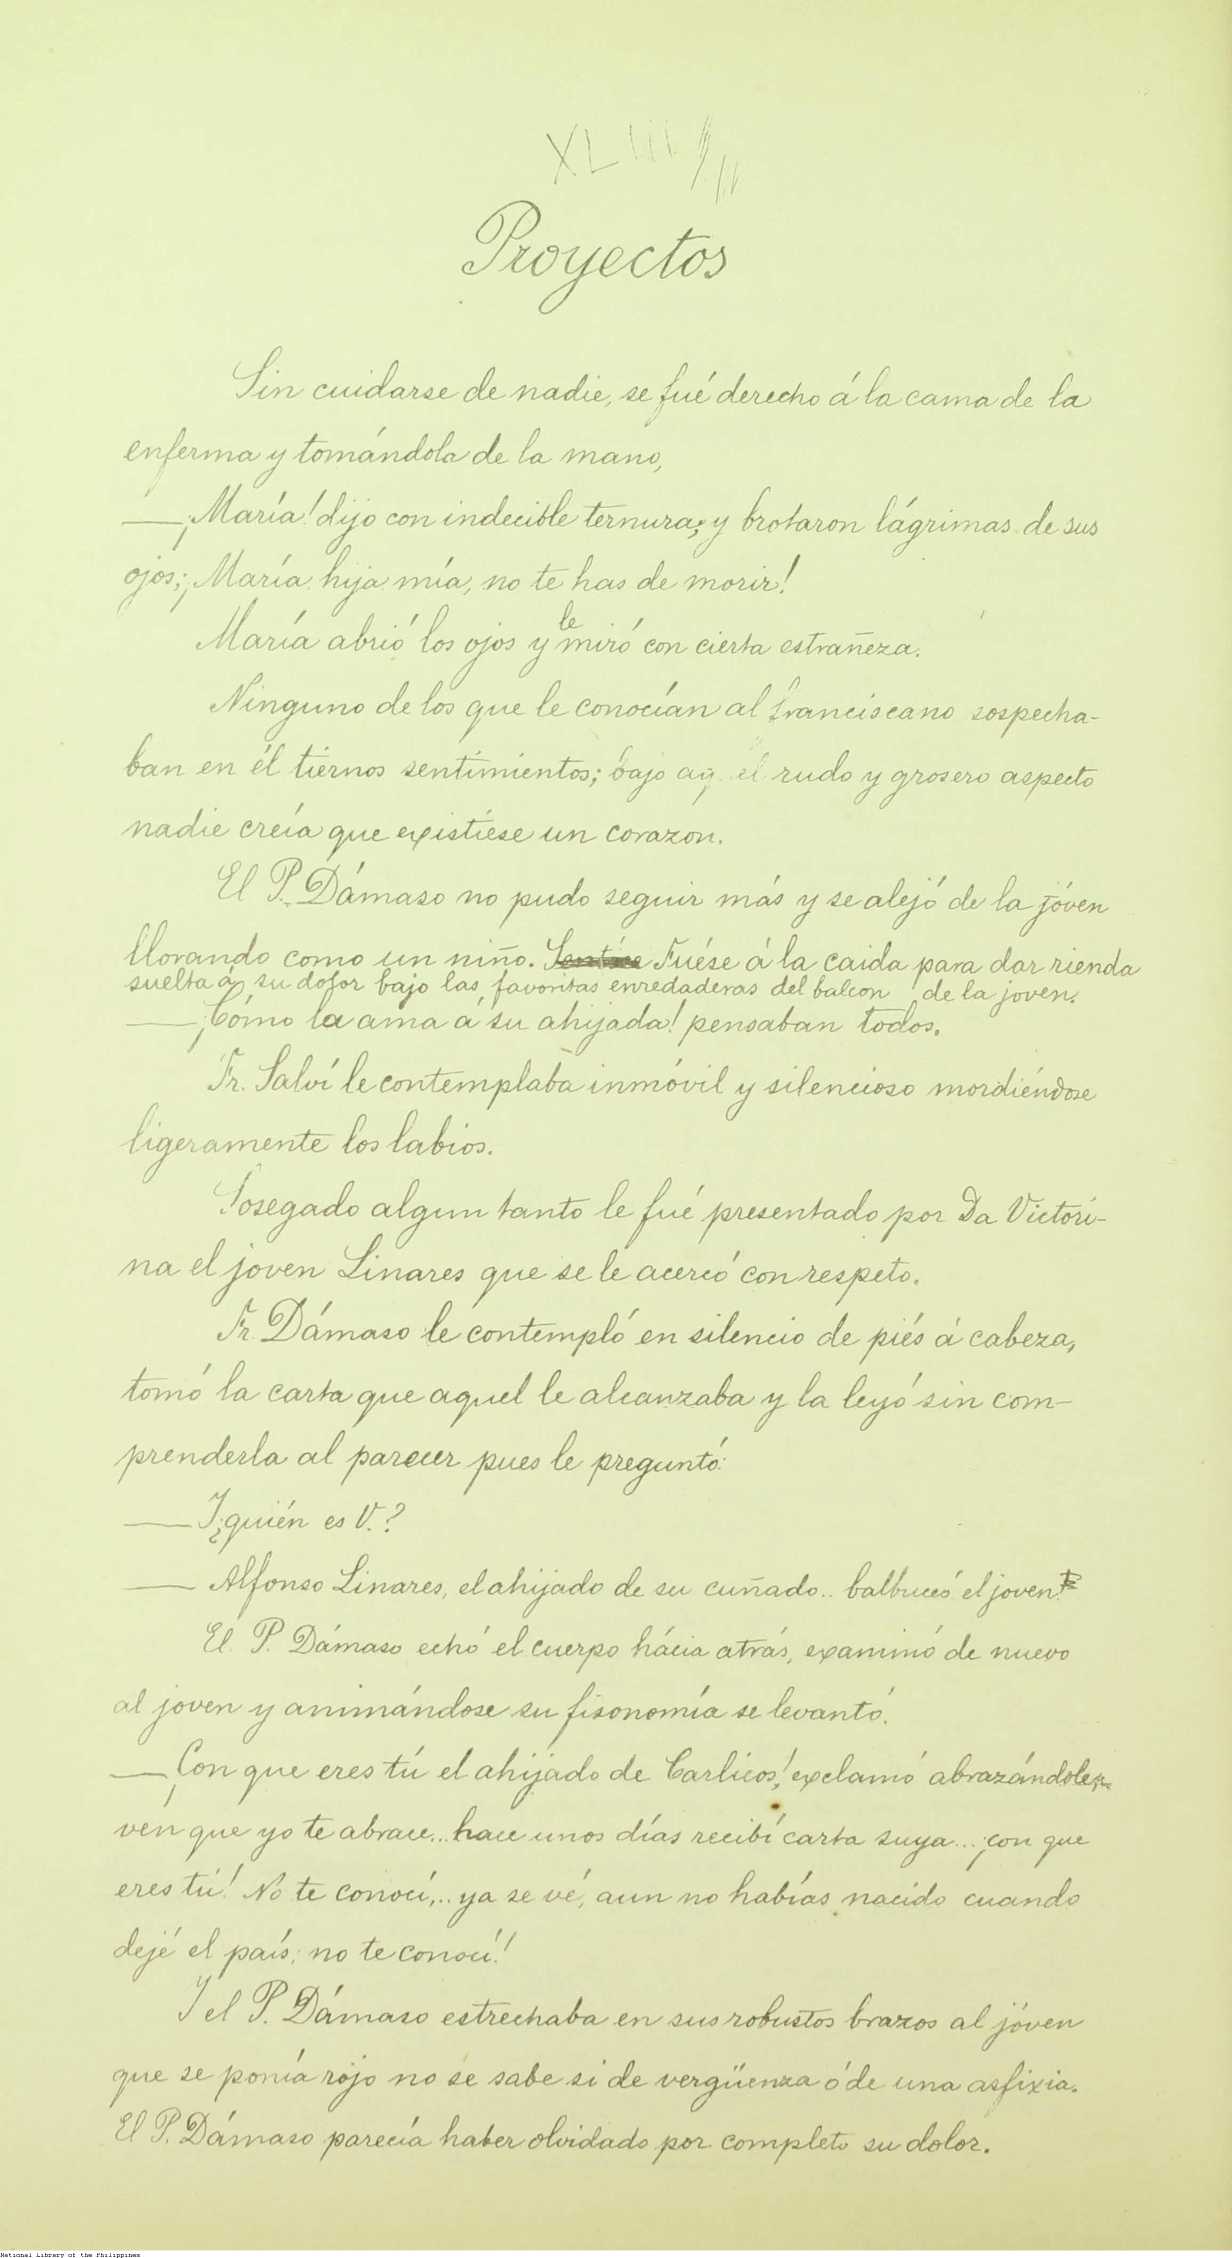 XLIII
Proyectos
Sin cuidarse de nadie, se fué derecho á la cama de la
enferma y tomándola de la mano,
—¡María! dijo con indecible ternura; y brotaron lágrimas de sus
ojos; ¡María, hija mía, no te has de morir!
María abrió los ojos y le miró con cierta estrañeza.
Ninguno de los que le conocían al franciscano sospecha-
ban en él tiernos sentimientos; bajo aquel rudo y grosero aspecto
nadie creía que existiese un corazon.
El P. Dámaso no pudo seguir más y se alejó de la jóven
llorando como un niño. Fuése á la caida para dar rienda
suelta á su dolor bajo las favoritas enredaderas del balcon de la joven.
—¡Cómo la ama á su ahijada! pensaban todos.
Fr. Salví le contemplaba inmóvil y silencioso mordiéndose
ligeramente los labios.
Sosegado algun tanto le fué presentado por Da Victori-
na el joven Linares que se le acercó con respeto.
Fr. Dámaso le contempló en silencio de piés á cabeza,
tomó la carta que aquel le alcanzaba y la leyó sin com-
prenderla al parecer pues le preguntó:
—I ¿quién es V.?
—Alfonso Linares, el ahijado de su cuñado.. balbuceó el joven.
El P. Dámaso echó el cuerpo hácia atrás, examinó de nuevo
al joven y animándose su fisonomía se levantó.
—¡Con que eres tú el ahijado de Carlicos! exclamó abrazándole;
ven que yo te abrace... hace unos días recibí carta suya... ¡con que
eres tú! No te conocí,.. ya se vé, aun no habías nacido cuando
dejé el país; no te conocí!
I el P. Dámaso estrechaba en sus robustos brazos al jóven
que se ponía rojo no se sabe si de vergüenza ó de una asfixia.
El P. Dámaso parecía haber olvidado por completo su dolor.
National Library of the Philippines